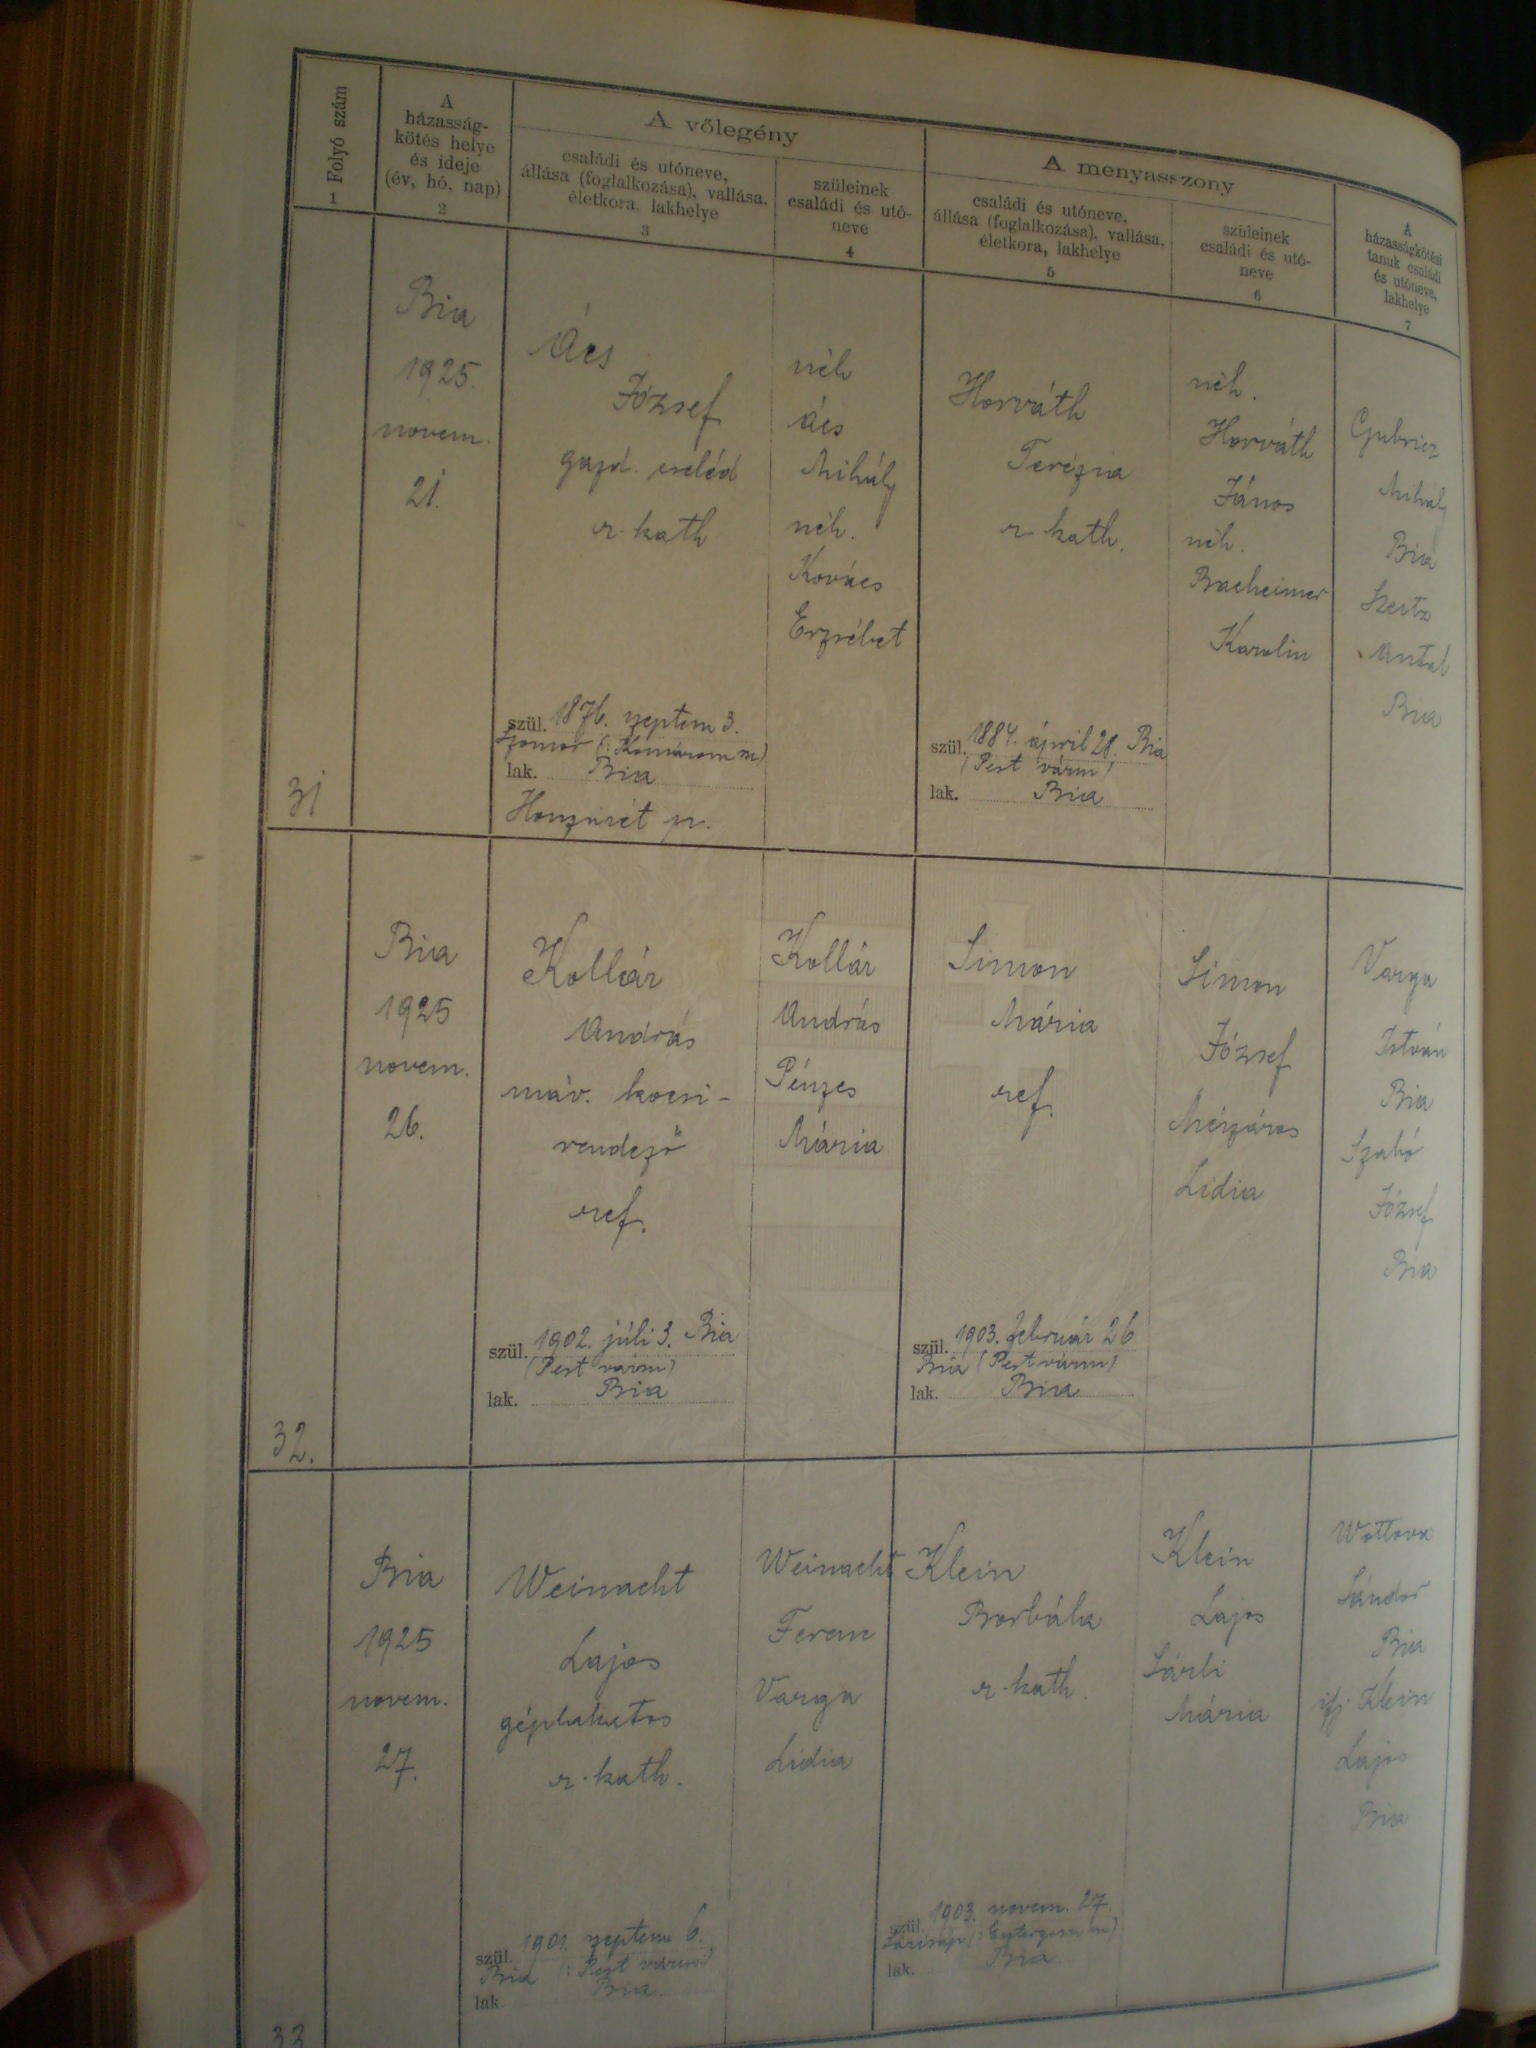 Folyó szám
1
A
házasság-
kötés helye
és ideje
(év, hó, nap)
2
A vőlegény
családi és utóneve,
állása (foglalkozása), vallása,
életkora, lakhelye
3
szüleinek
családi és utó-
neve
4
A menyasszony
családi és utóneve,
állása (foglalkozása), vallása,
életkora, lakhelye
5
szüleinek
családi és utó-
neve
6
A
házasságkötési
tanuk családi
és utóneve,
lakhelye
7
31
Bia
1925.
novem.
21.
Ács
József
gazd. cseléd
r. kath
szül. 1876. szeptem 3.
Szomor (: Komárom m)
lak. Bia
néh
Ács
Mihály
néh.
Kovács
Erzsébet
Horváth
Terézia
r kath.
szül. 1884. ápril 28. Bia
(Pest várm)
lak. Bia
néh.
Horváth
János
néh.
Bacheimer
Karolin
Mihály
Bia
Antal
Bia
32.
Bia
1925
novem.
26.
Kollár
András
máv. kocsi-
rendező
ref.
szül. 1902. júli 3. Bia
(Pest várm)
lak. Bia
Kollár
András
Pénzes
Mária
Simon
Mária
ref.
szül. 1903. február 26
Bia (Pest várm)
lak. Bia
Simon
József
Mészáros
Lidia
Varga
István
Bia
Szabó
József
Bia
33
Bia
1925
novem.
27.
Weinacht
Lajos
géplakatos
r. kath.
szül. 1901. szeptem 6.
Bia (: Pest várm)
lak. Bia
Weinacht
Ferenc
Varga
Lidia
Klein
Borbála
r. kath.
szül. 1903. novem. 27.
Sárisáp (: Esztergom m)
lak. Bia
Klein
Lajos
Sárli
Mária
Wottova
Sándor
Bia
ifj. Klein
Lajos
Bia